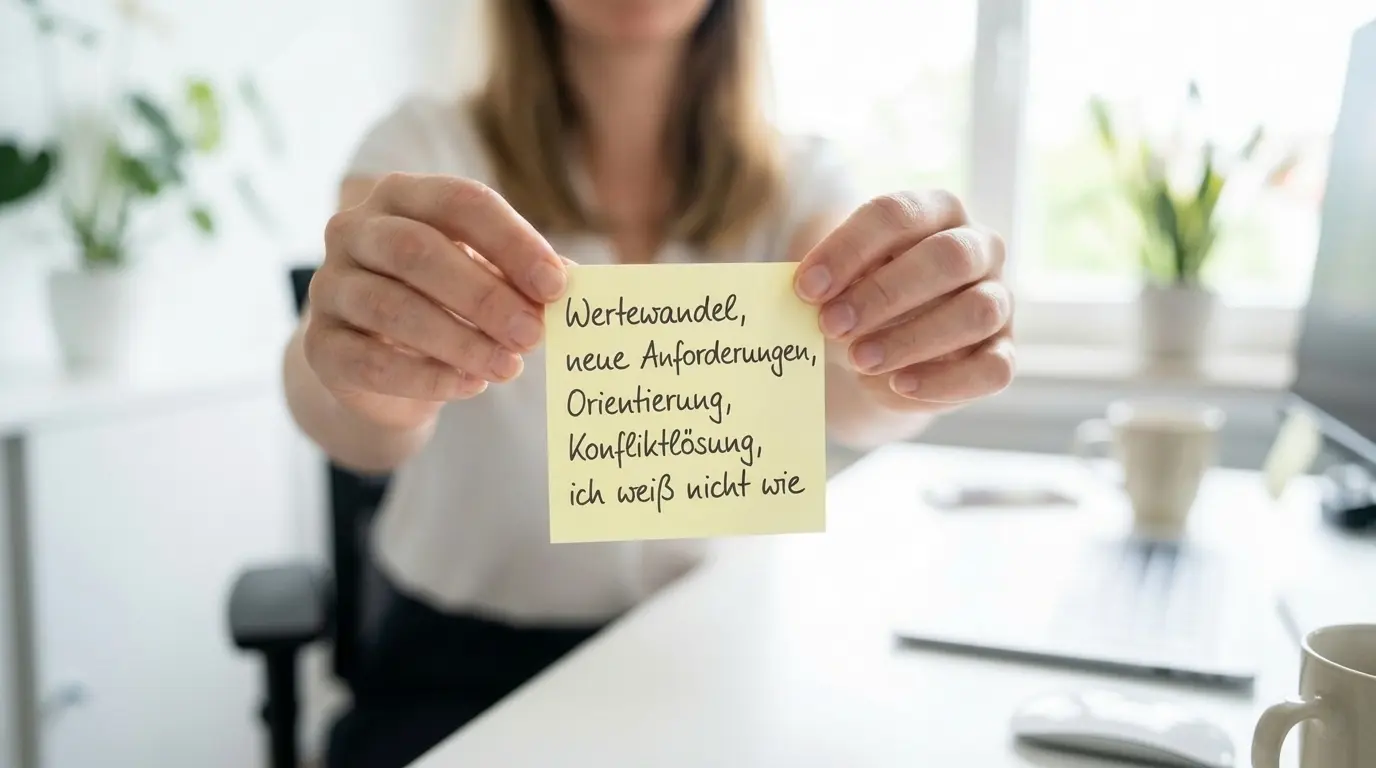 Wertewandel,
neue Anforderungen,
Orientierung,
Konfliktlösung,
ich weiß nicht wie